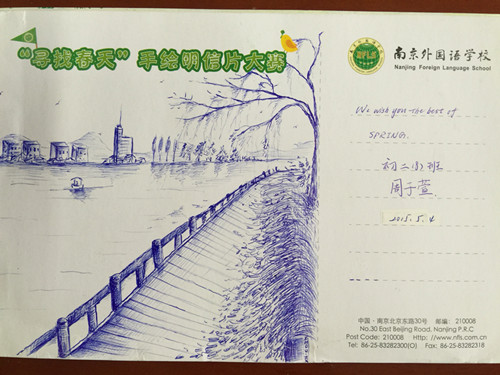 “寻找春天”手绘明信片大赛
NFLS
南京外国语学校
Nanjing Foreign Language School
We wish you the best of
SPRING.
周子萱
2015.5.4
中国·南京北京东路30号 邮编：210008
No.30 East Beijing Road, Nanjing P.R.C
Post Code: 210008 Http: //www.nfls.com.cn
Tel: 86-25-83282300(O) Fax: 86-25-83282318